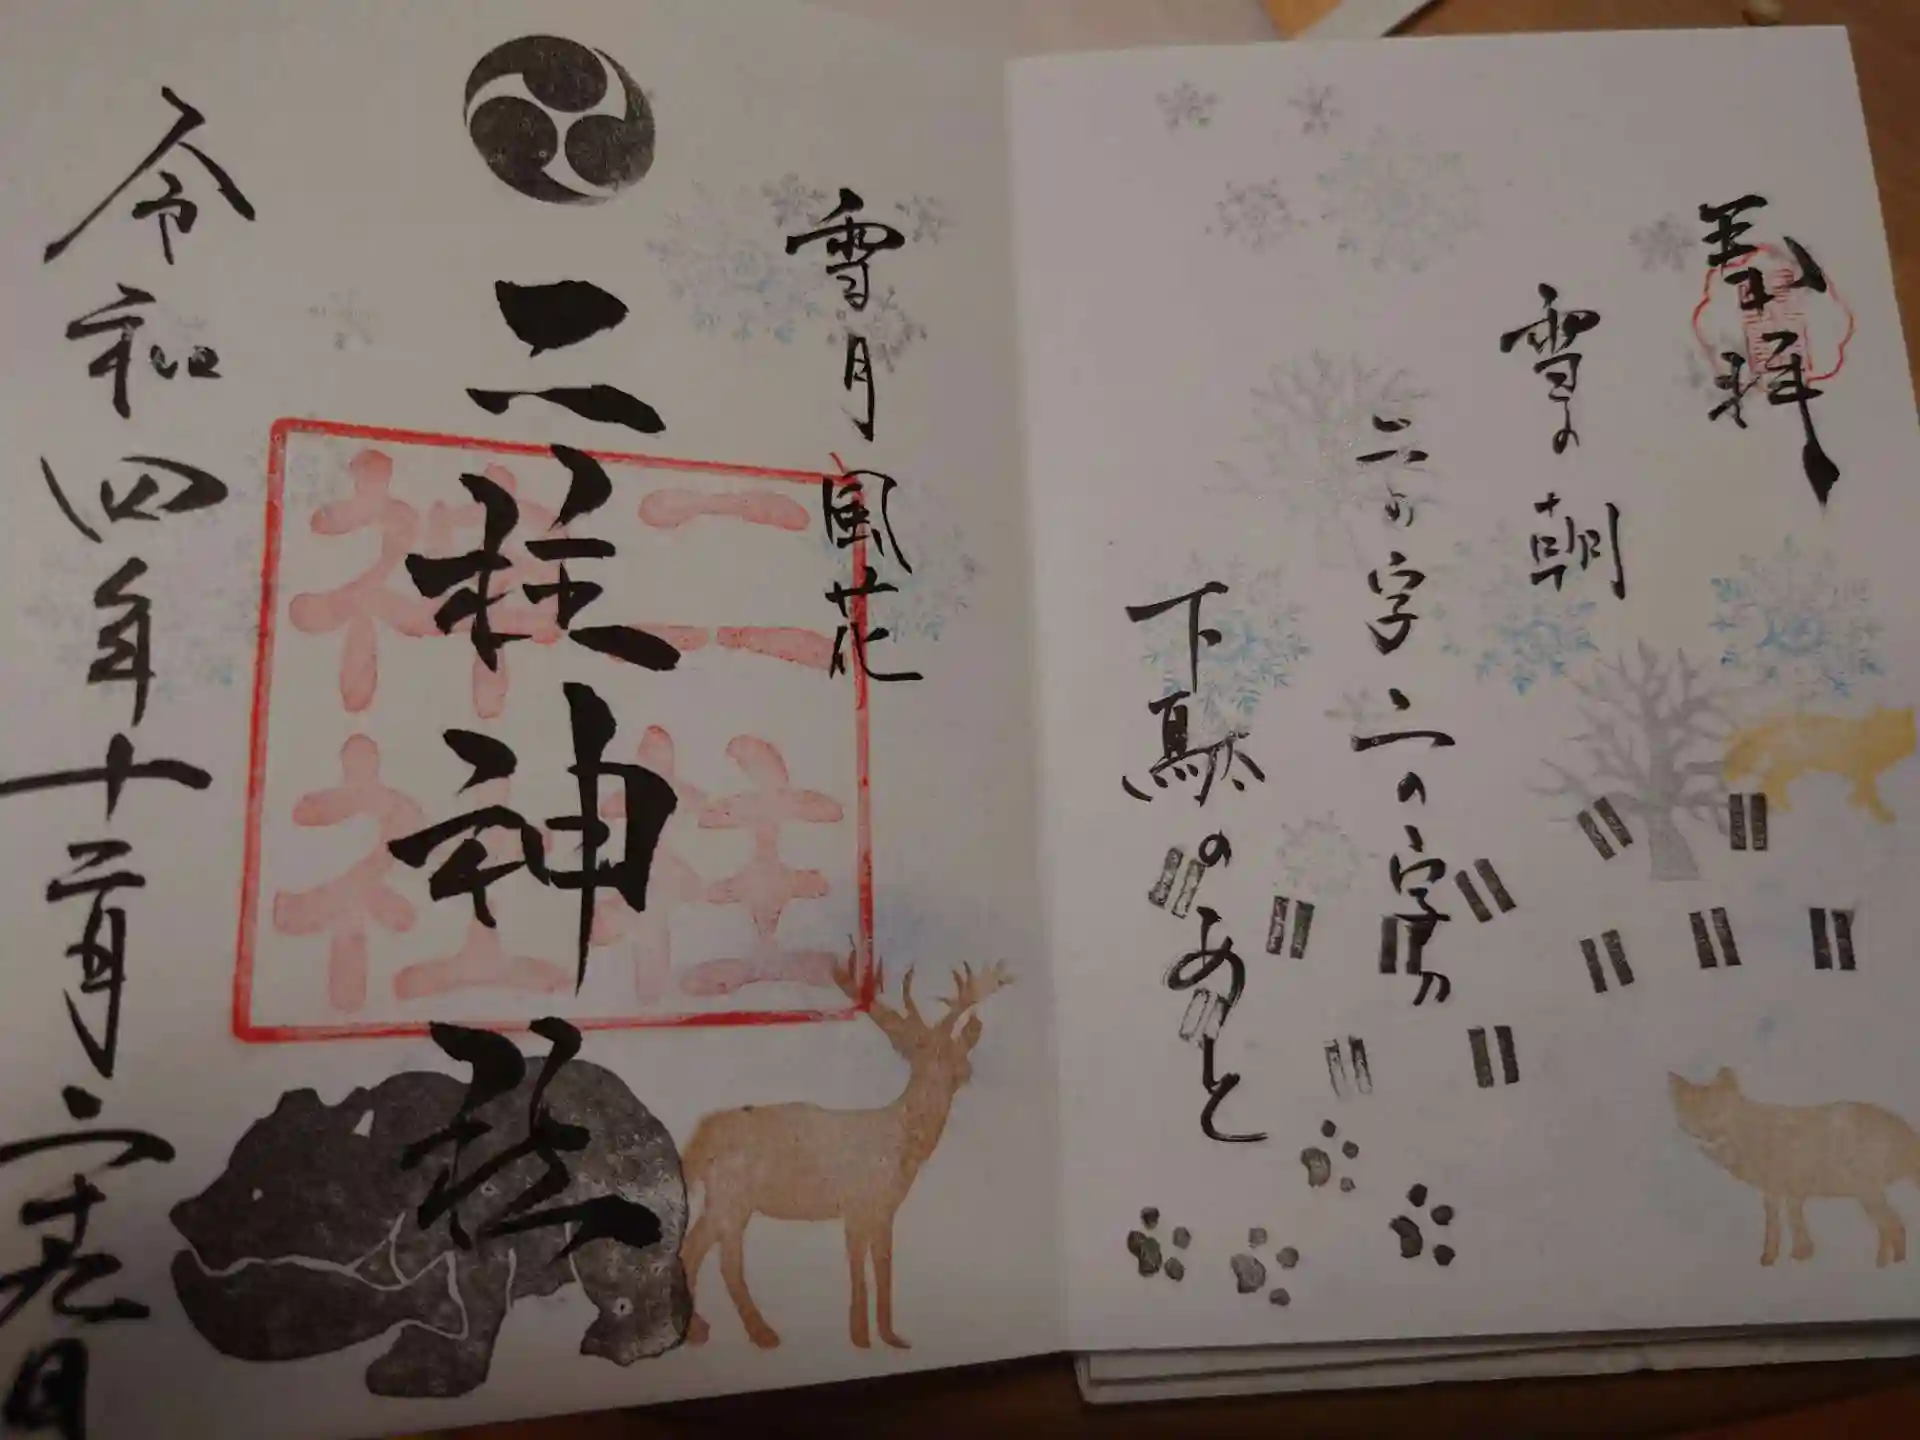 拝
雪の朝
二の字二の字の
下駄のあと
雪月風花
二柱神社
二柱
神社
令和四年十二月二十九日